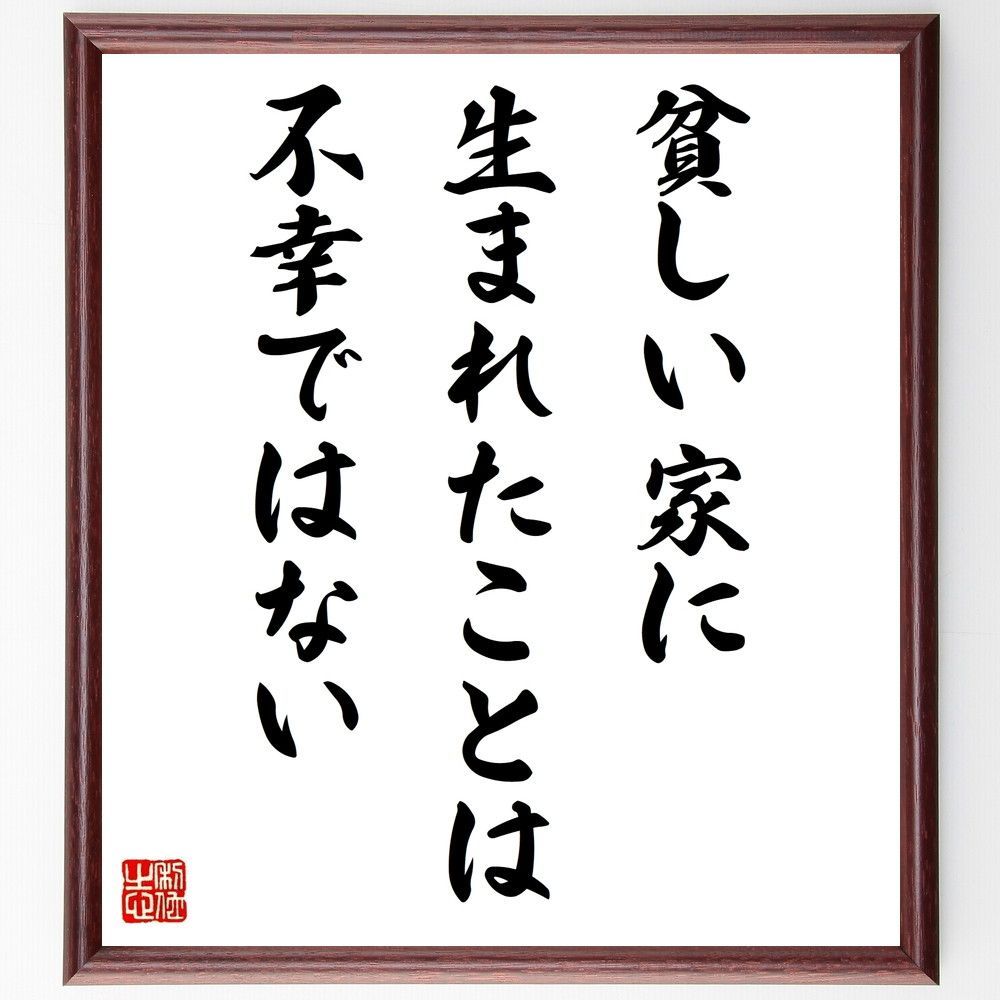 貧しい家に
生まれたことは
不幸ではない